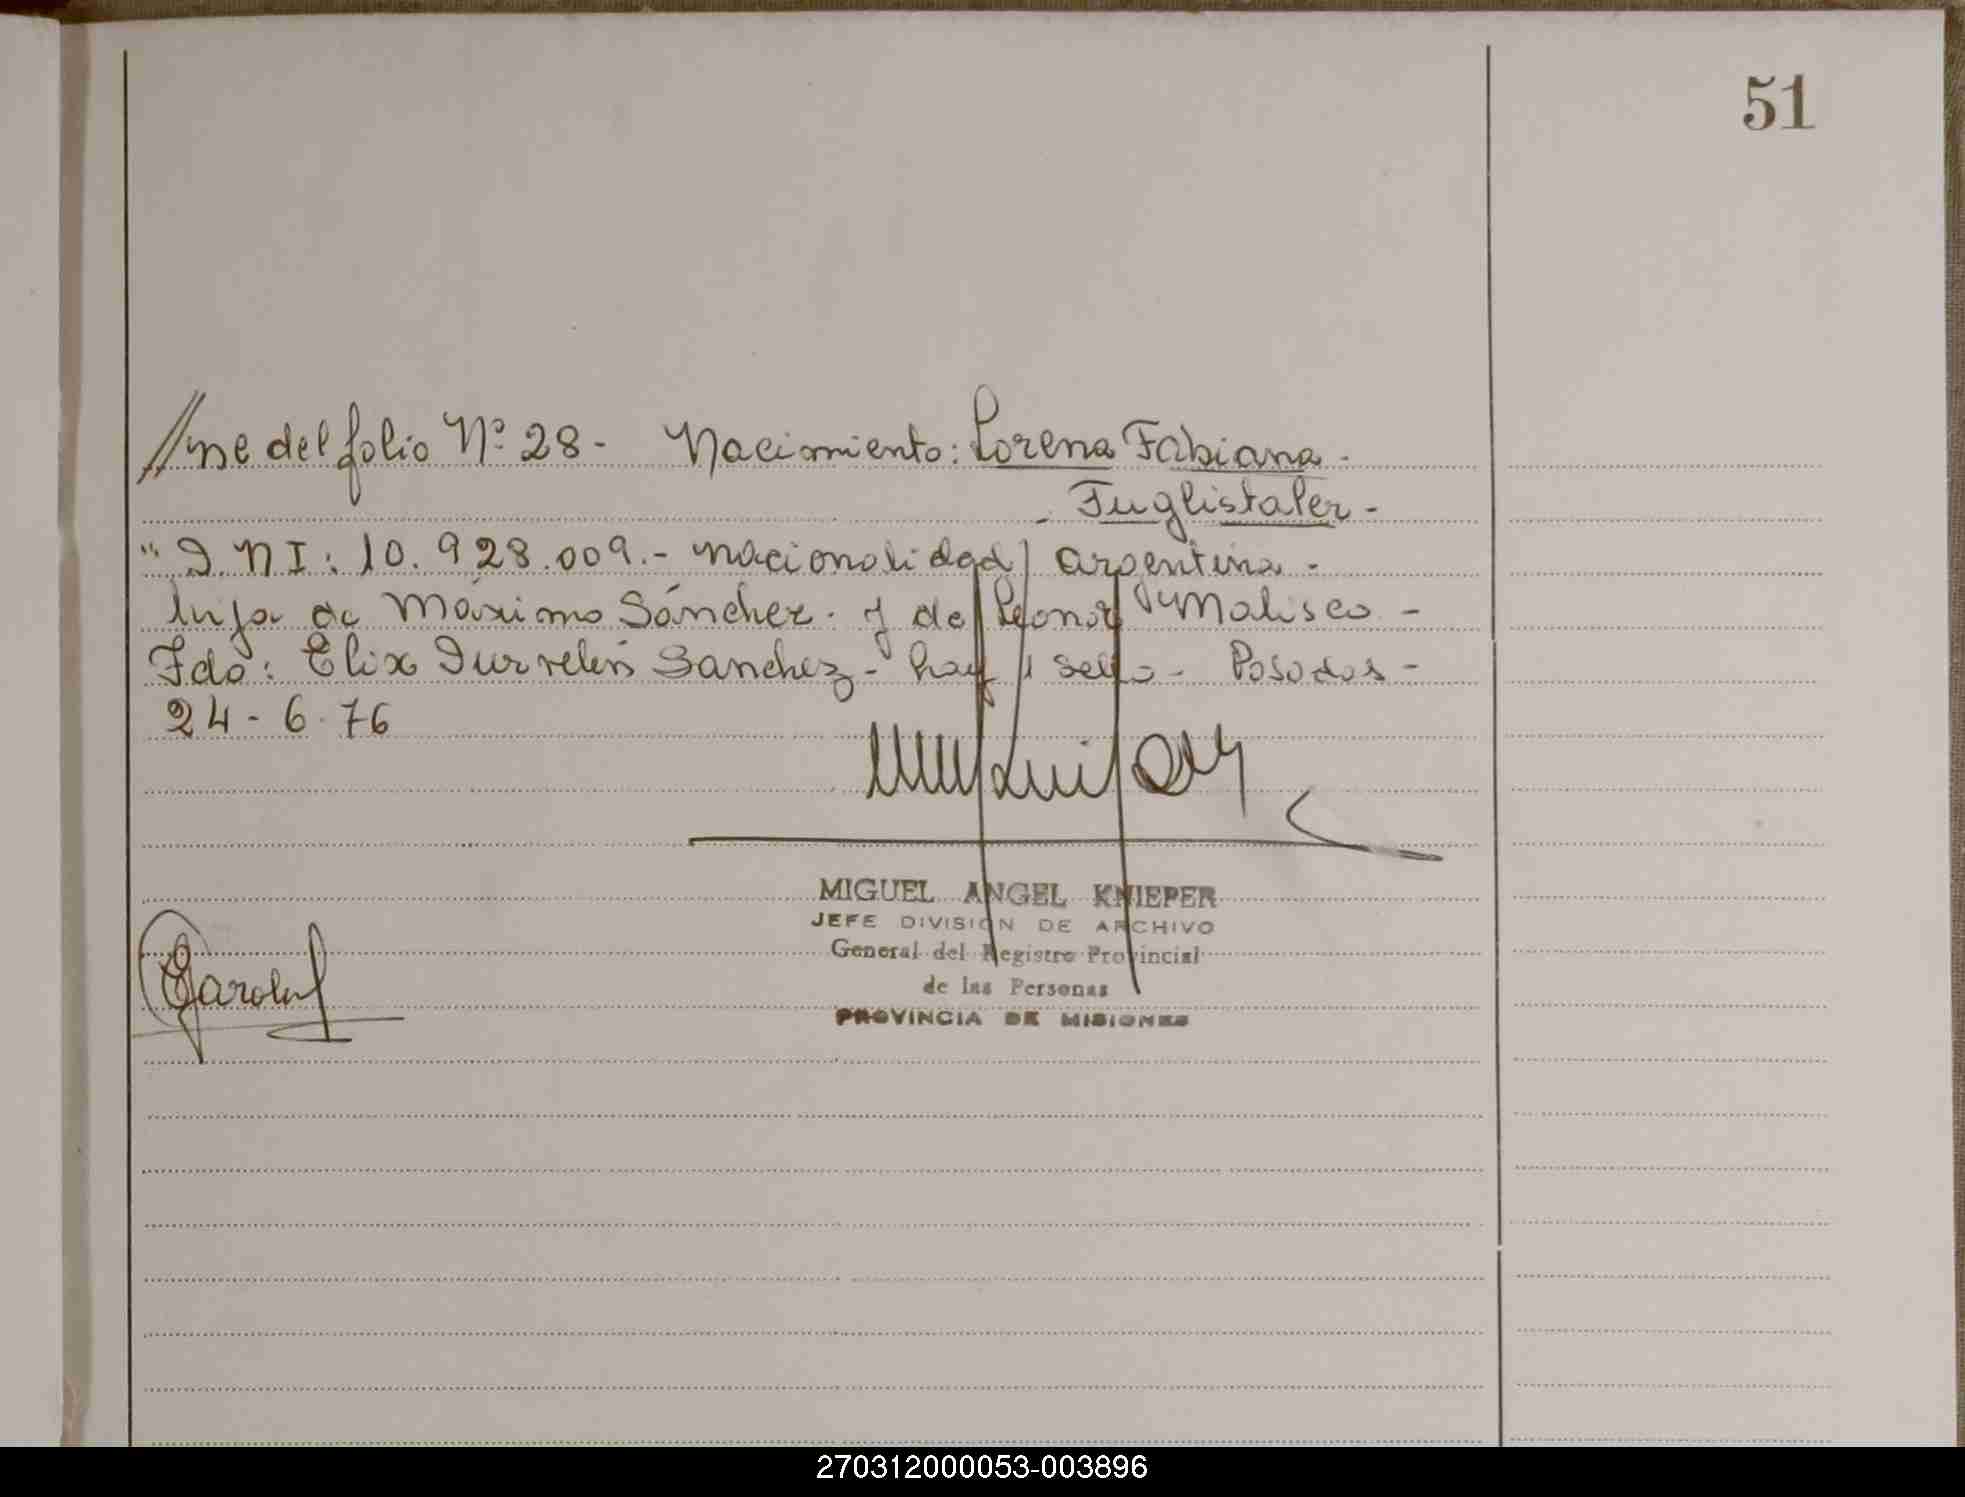 51
//ne del folio Nº 28 - Nacimiento: Lorena Fabiana -
- Fuglistaler -
" D.NI: 10.928.009.- nacionalidad argentina -
hija de Máximo Sánchez. y de Leonor Malisco -
Fdo: Elix Sanchez - hay 1 sello - Posadas -
24-6-76
MIGUEL ANGEL KNIEPER
JEFE DIVISION DE ARCHIVO
General del Registro Provincial
de las Personas
PROVINCIA DE MISIONES
270312000053-003896